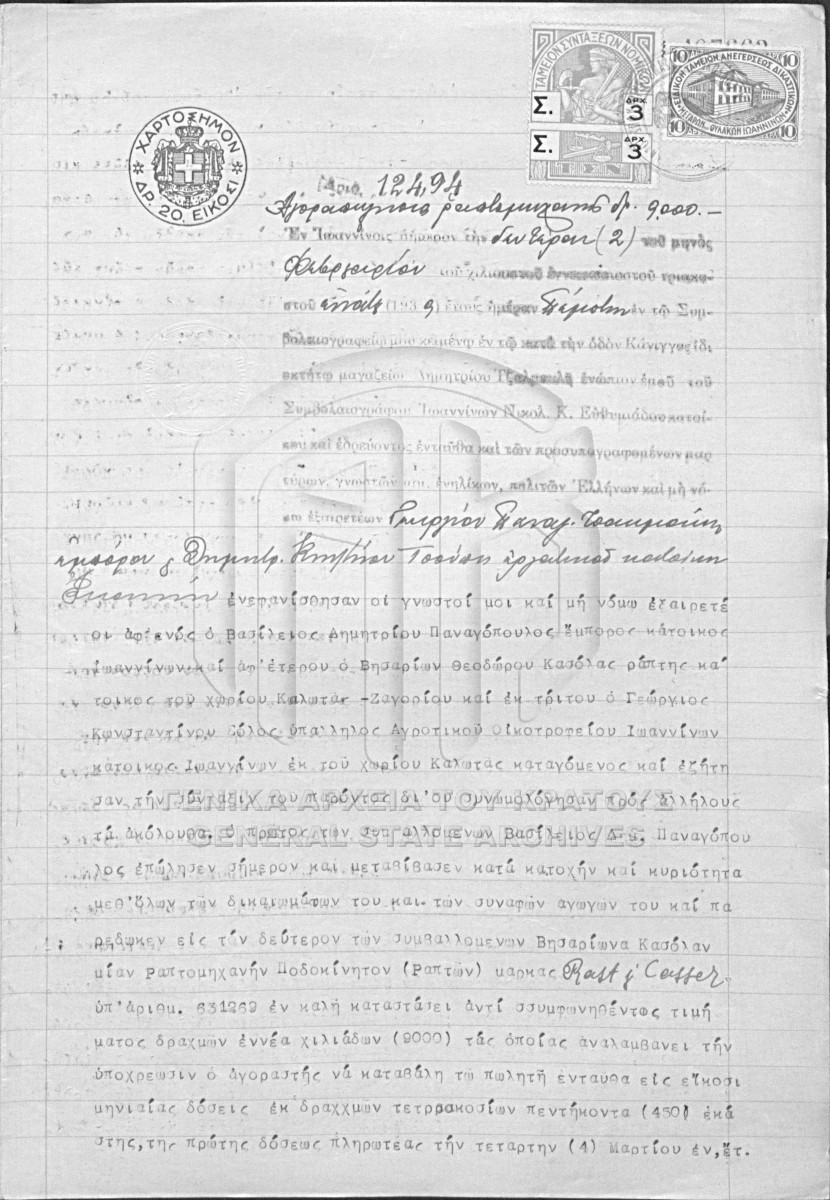 ΤΑΜΕΙΟΝ ΣΥΝΤΑΞΕΩΝ ΝΟΜΙΚΩΝ
Σ. ΔΡΧ. 3
Σ. ΔΡΧ. 3
ΤΣΝ
10 10
ΕΙΔΙΚΟΝ ΤΑΜΕΙΟΝ ΑΝΕΓΕΡΣΕΩΣ ΔΙΚΑΣΤΙΚΩΝ
ΦΥΛΑΚΩΝ ΙΩΑΝΝΙΝΩΝ
10 10
ΧΑΡΤΟΣΗΜΟΝ
ΔΡ. 20. ΕΙΚΟΣΙ
Ἀριθ. 12494
Ἀγοραπωλησία ραπτομηχανῆς δρ. 9000.-
Ἐν Ἰωαννίνοις σήμερον τὴν δευτέραν (2) τοῦ μηνὸς
Φεβρουαρίου τοῦ χιλιοστοῦ ἐννεακοσιοστοῦ τριακο-
στοῦ ἐνάτου (1939) ἔτους ἡμέραν Πέμπτην ἐν τῷ Συμ-
βολαιογραφείῳ μου κειμένῳ ἐν τῷ κατὰ τὴν ὁδὸν Κάνιγγος ἰδι
οκτήτῳ μαγαζείῳ Δημητρίου ἐνώπιον ἐμοῦ τοῦ
Συμβολαιογράφου Ἰωαννίνων Νικολ. Κ. Εὐθυμιάδου κατοί-
κου καὶ ἑδρεύοντος ἐνταῦθα καὶ τῶν προσυπογραφομένων μαρ
τύρων, γνωστῶν μοι, ἐνηλίκων, πολιτῶν Ἑλλήνων καὶ μὴ νό-
μῳ ἐξαιρετέων Γεωργίου Παναγ.
ἐμπόρου καὶ Δημητρ. ἐργατικοῦ κατοίκων
ἐνεφανίσθησαν οἱ γνωστοί μοι καί μή νόμω ἐξαιρετέ
οι ἀφ'ἑνός ὁ Βασίλειος Δημητρίου Παναγόπουλος ἔμπορος κάτοικος
Ἰωαννίνων καί ἀφ'ἑτέρου ὁ Βησαρίων Θεοδώρου Κασόλας ράπτης κά
τοικος τοῦ χωρίου Καλωτᾶς -Ζαγορίου καί ἐκ τρίτου ὁ Γεώργιος
Κωνσταντίνου Σῦλος ὑπάλληλος Ἀγροτικοῦ Οἰκοτροφείου Ἰωαννίνων
κάτοικος Ἰωαννίνων ἐκ τοῦ χωρίου Καλωτᾶς καταγόμενος καί ἐζήτη
σαν τήν σύνταξιν τοῦ παρόντος δι'οὗ συνωμολόγησαν πρός ἀλλήλους
ΓΕΝΙΚΑ ΑΡΧΕΙΑ ΤΟΥ ΚΡΑΤΟΥΣ
τά ἀκόλουθα. ὁ πρῶτος τῶν συμβαλλομένων Βασίλειος Δημ. Παναγόπου
GENERAL STATE ARCHIVES
λος ἐπώλησεν σήμερον καί μεταβίβασεν κατά κατοχήν καί κυριότητα
μεθ'ὅλων τῶν δικαιωμάτων του καί τῶν συναφῶν ἀγωγῶν του καί πα
ρέδωκεν εἰς τόν δεύτερον τῶν συμβαλλομένων Βησαρίωνα Κασόλαν
μίαν Ραπτομηχανήν Ποδοκίνητον (Ραπτῶν) μάρκας Rast & Casser
ὑπ'ἀριθμ. 631262 ἐν καλή καταστάσει ἀντί σσυμφωνηθέντος τιμή
ματος δραχμῶν ἐννέα χιλιάδων (9000) τάς ὁποίας ἀναλαμβάνει τήν
ὑποχρέωσιν ὁ ἀγοραστής νά καταβάλη τῶ πωλητῆ ἐνταῦθα εἰς εἴκοσι
μηνιαίας δόσεις ἐκ δραχχμῶν τετρρακοσίων πεντήκοντα (450) ἑκά
στης,της πρώτης δόσεως πληρωτέας τήν τετάρτην (4) Μαρτίου ἐν,ἔτ.